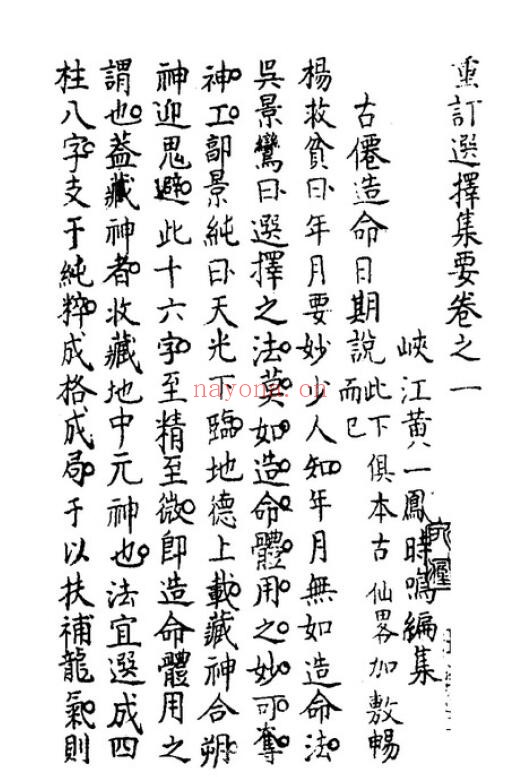 重訂選擇集要卷之一
峽江黃一鳳時鳴編集
古僊造命日期說此下俱本古仙畧加敷暢而已
楊救貧曰年月要妙少人知年月無如造命法
吳景鸞曰選擇之法莫如造命體用之妙可奪
神工郭景純曰天光下臨地德上載藏神合朔
神迎鬼避此十六字至精至微即造命體用之
謂也蓋藏神者收藏地中元神也法宜選成四
柱八字支干純粹成格成局于以扶補龍氣則
nayona.cn